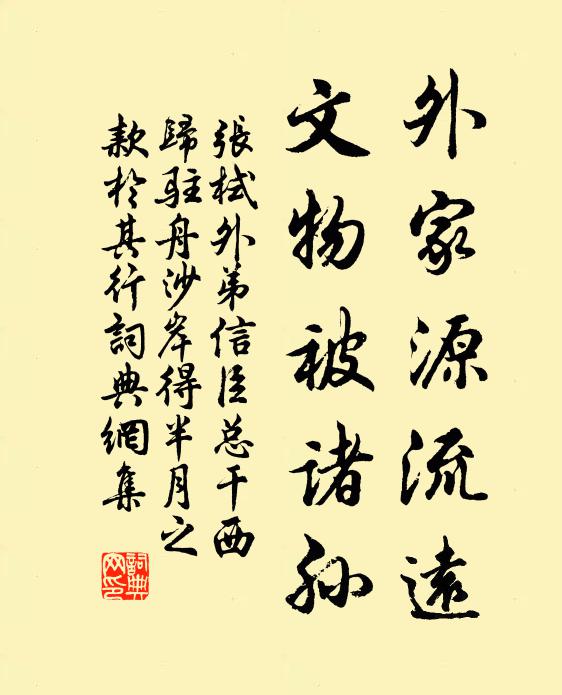 外家源流遠
文物被诸孙
張栻外弟信臣总干西
歸驻舟沙岸得半月之
款於其行詞典網集
詞典
网印